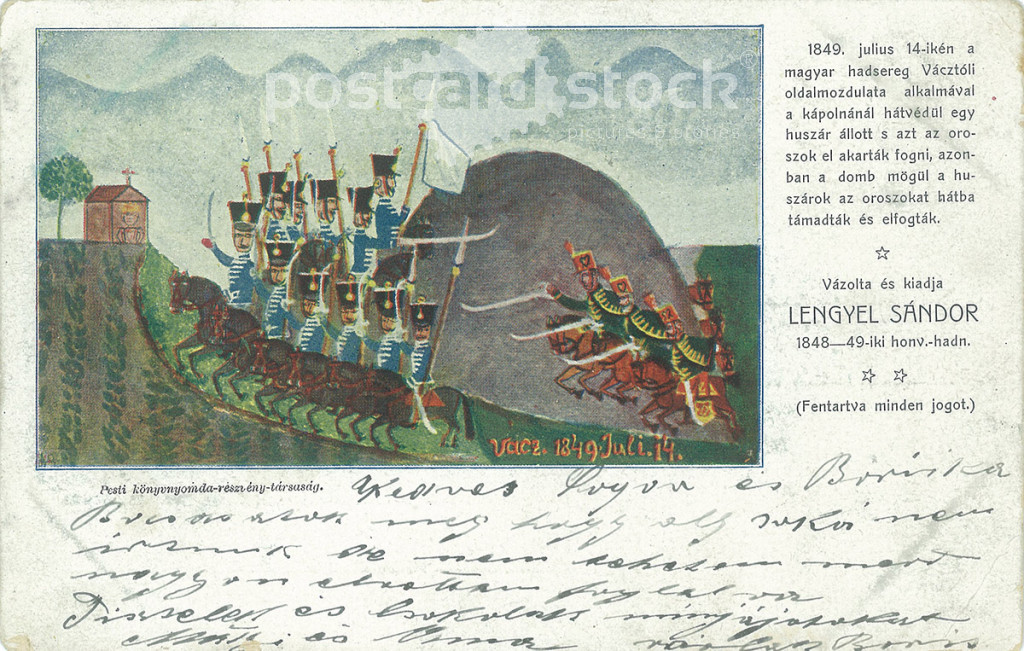 postcard stock®
pictures & stories
1849. julius 14-ikén a
magyar hadsereg Vácztóli
oldalmozdulata alkalmával
a kápolnánál hátvédül egy
huszár állott s azt az oro-
szok el akarták fogni, azon-
ban a domb mögül a hu-
szárok az oroszokat hátba
támadták és elfogták.
Vázolta és kiadja
LENGYEL SÁNDOR
1848—49-iki honv.-hadn.
(Fentartva minden jogot.)
Vacz. 1849. Juli. 14.
Pesti könyvnyomda-részvény-társaság.
Kedves és Boriska
meg hogy oly soká nem
irtunk de nem tehetem mert
nagyon el foglalva
Tisztelet és Csokolat mindnyájotokat
és Boris